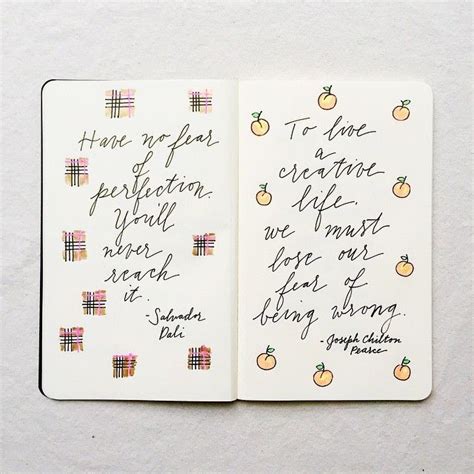 Have no fear
of
perfection.
You'll
never
reach
it.
-Salvador
Dali
To live
a
creative
life.
we must
lose our
fear of
being wrong.
-Joseph Chilton
Pearce